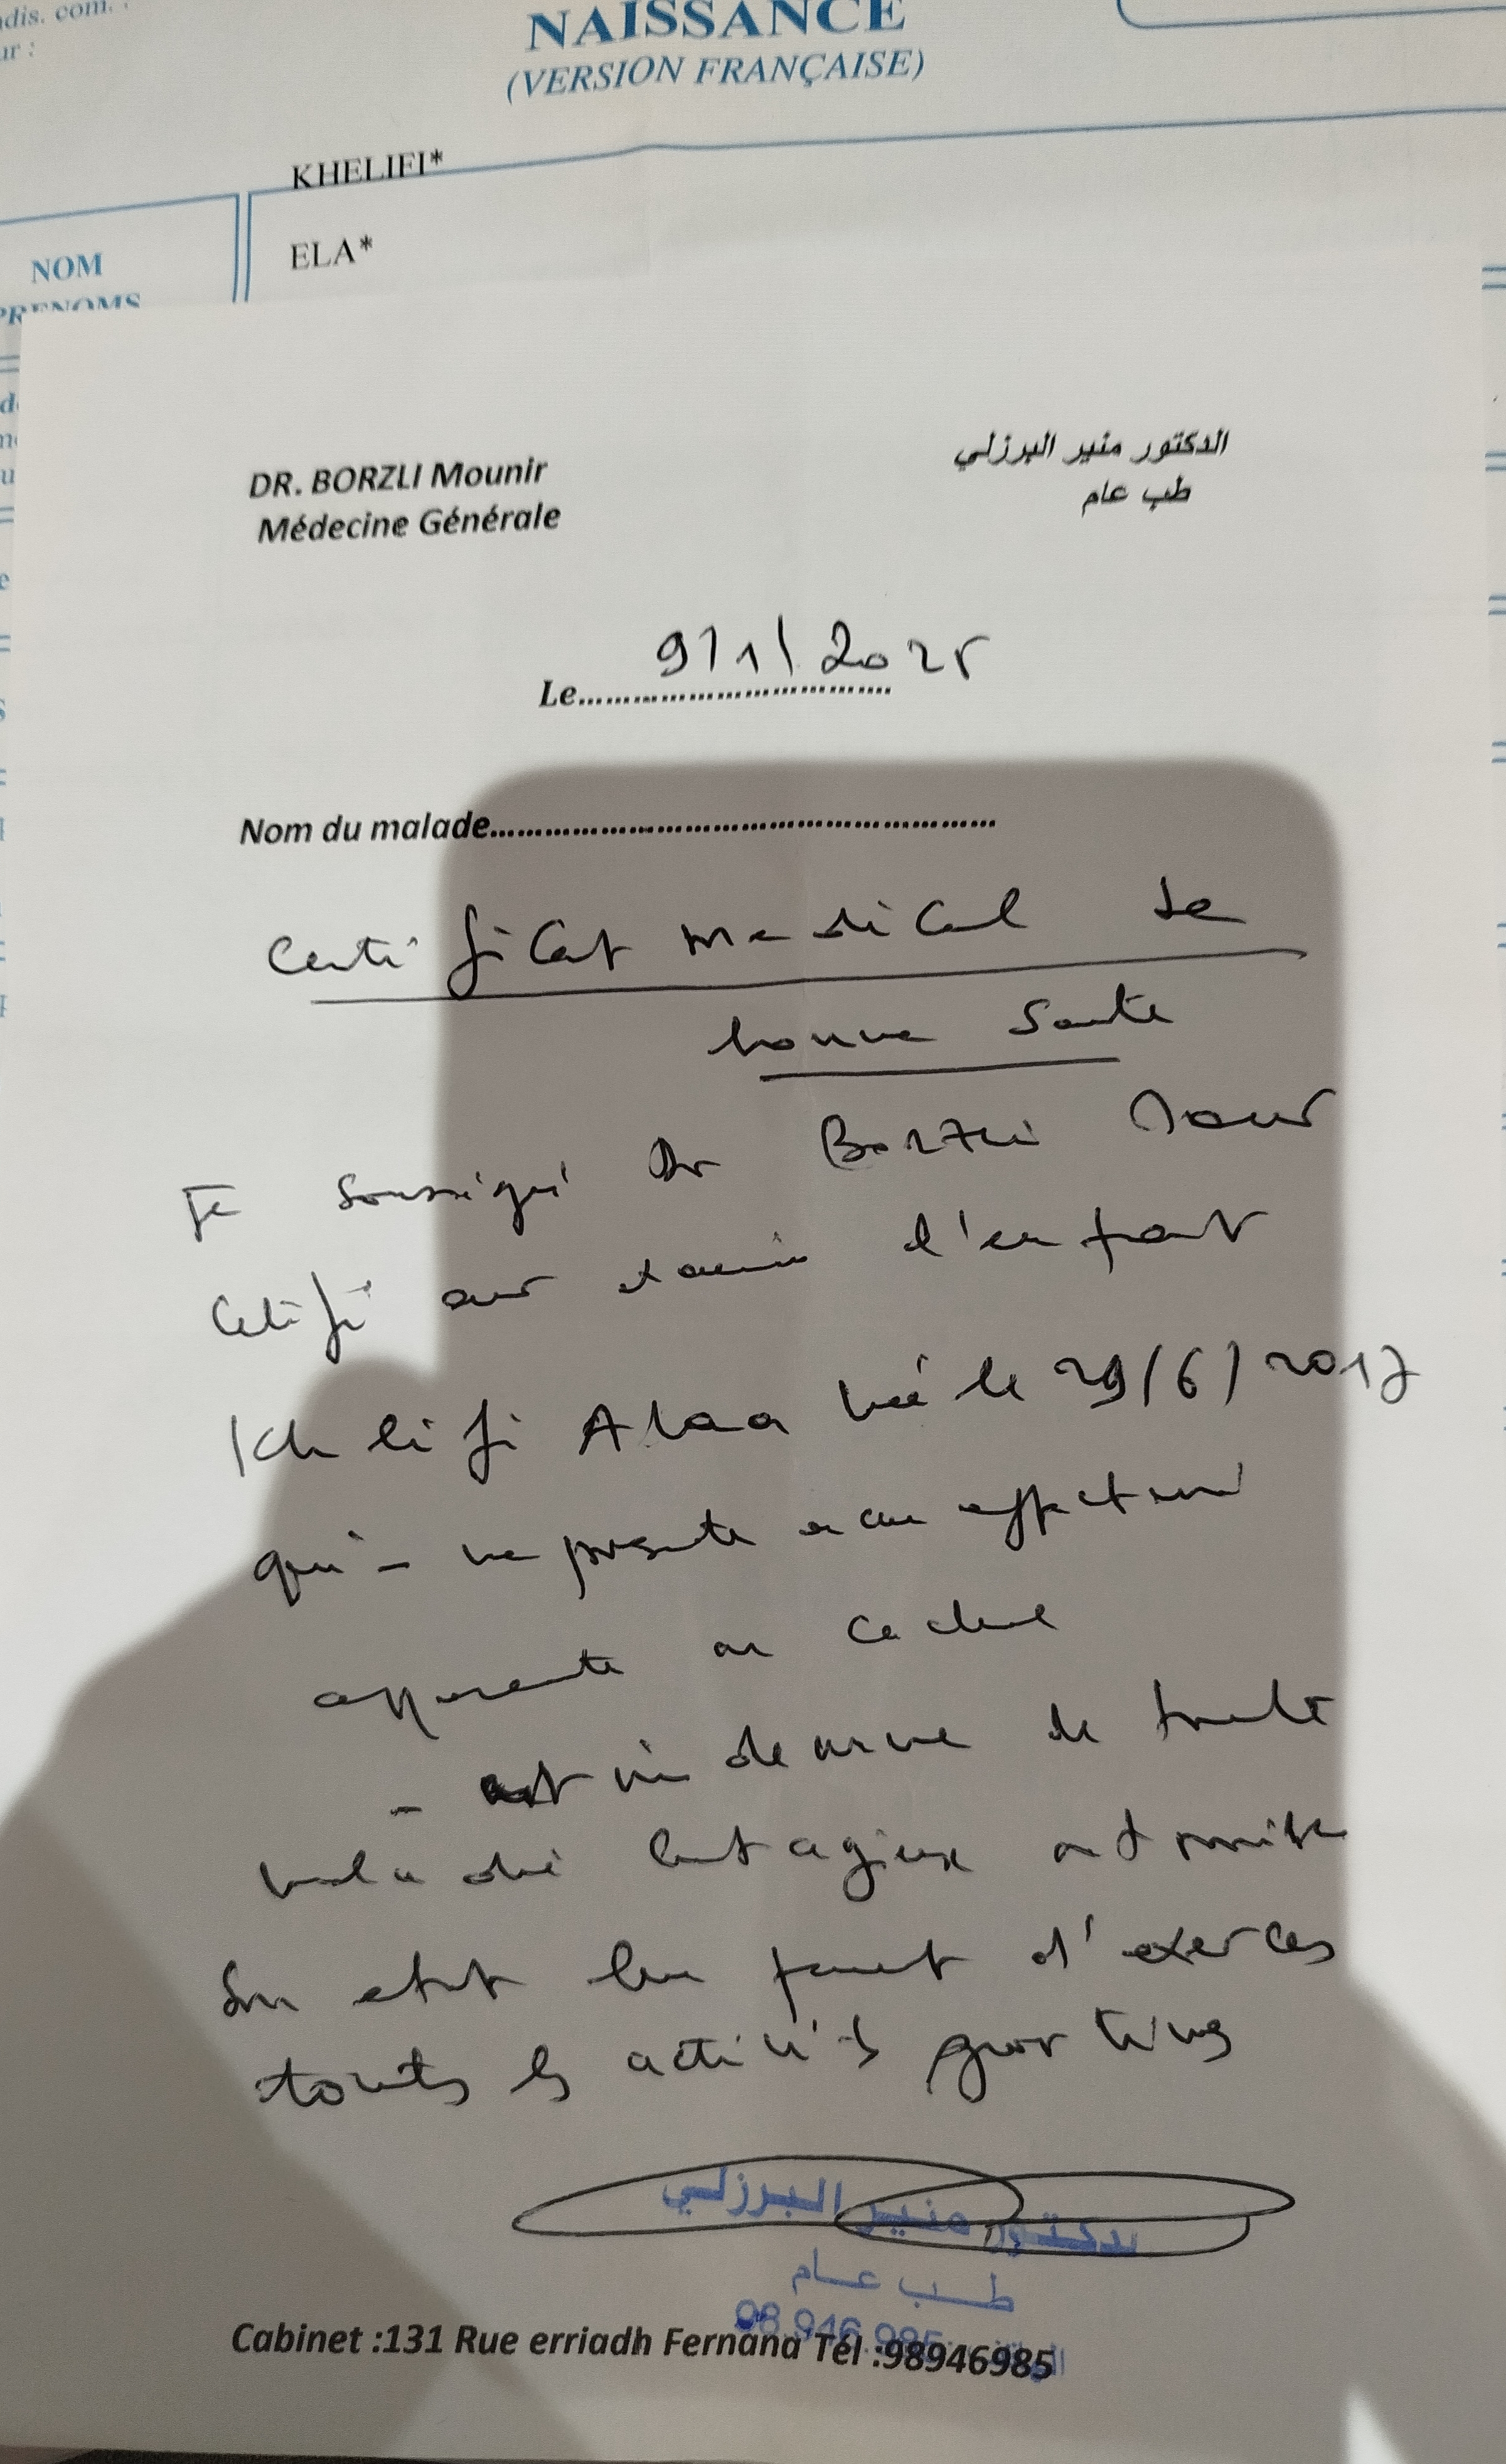 dis. com.
ur :
NAISSANCE
(VERSION FRANÇAISE)
KHELIFI*
ELA*
NOM
PRENOMS
DR. BORZLI Mounir
Médecine Générale
الدكتور منير البرزلي
طب عام
Le 9/1/2025
Nom du malade
Certificat medical de
bonne sante
Je soussigné Dr Borzli Mounir
Certifie avoir examiné l'enfant
Khlifi Alaa née le 29/6/2017
qui - ne presente aucune affection
apparente ou cachée
- est indemne de toute
maladie contagieuse
Son etat lui permet d'exercer
toutes les activités sportives
دكتور منير البرزلي
طب عام
98.946.985
Cabinet :131 Rue erriadh Fernana Tél :98946985